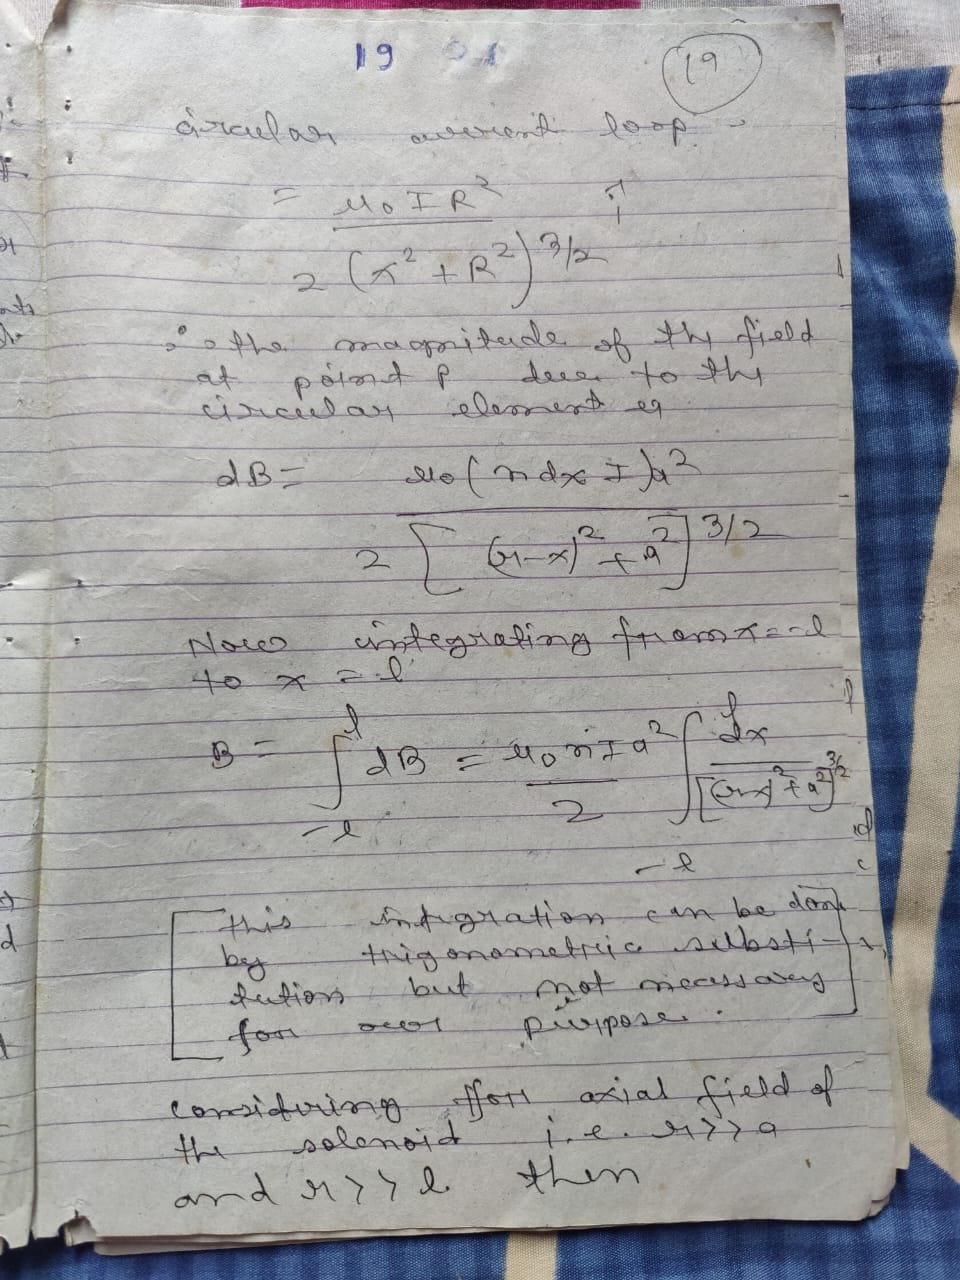 19
19
circular current loop.
= μ0 I R² î
2 (x² + R²)^3/2
∴ the magnitude of the field
at point P due to the
circular element is
dB = μ0 (n dx I) a²
2 [(r-x)² + a²]^3/2
Now integrating from x = -l
to x = l
B = ∫ -l l dB = μ0 n I a² / 2 ∫ -l l dx / [(r-x)² + a²]^3/2
[ this integration can be done
by trigonometric substi-
tution but not necessary
for our purpose. ]
considering for axial field of
the solenoid i.e. r>>a
and r>>l then